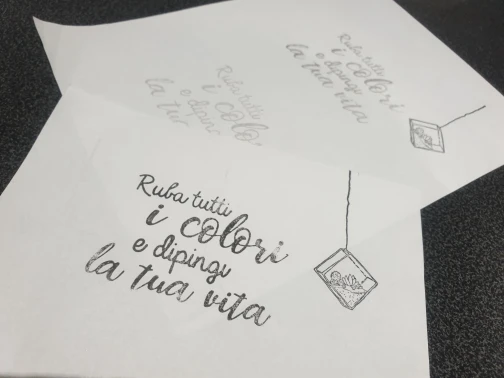 Ruba tutti
i colori
e dipingi
la tua vita
Ruba tutti
i colori
e dipingi
la tua vita
Ruba tutti
i colo
e dipinc
la tur